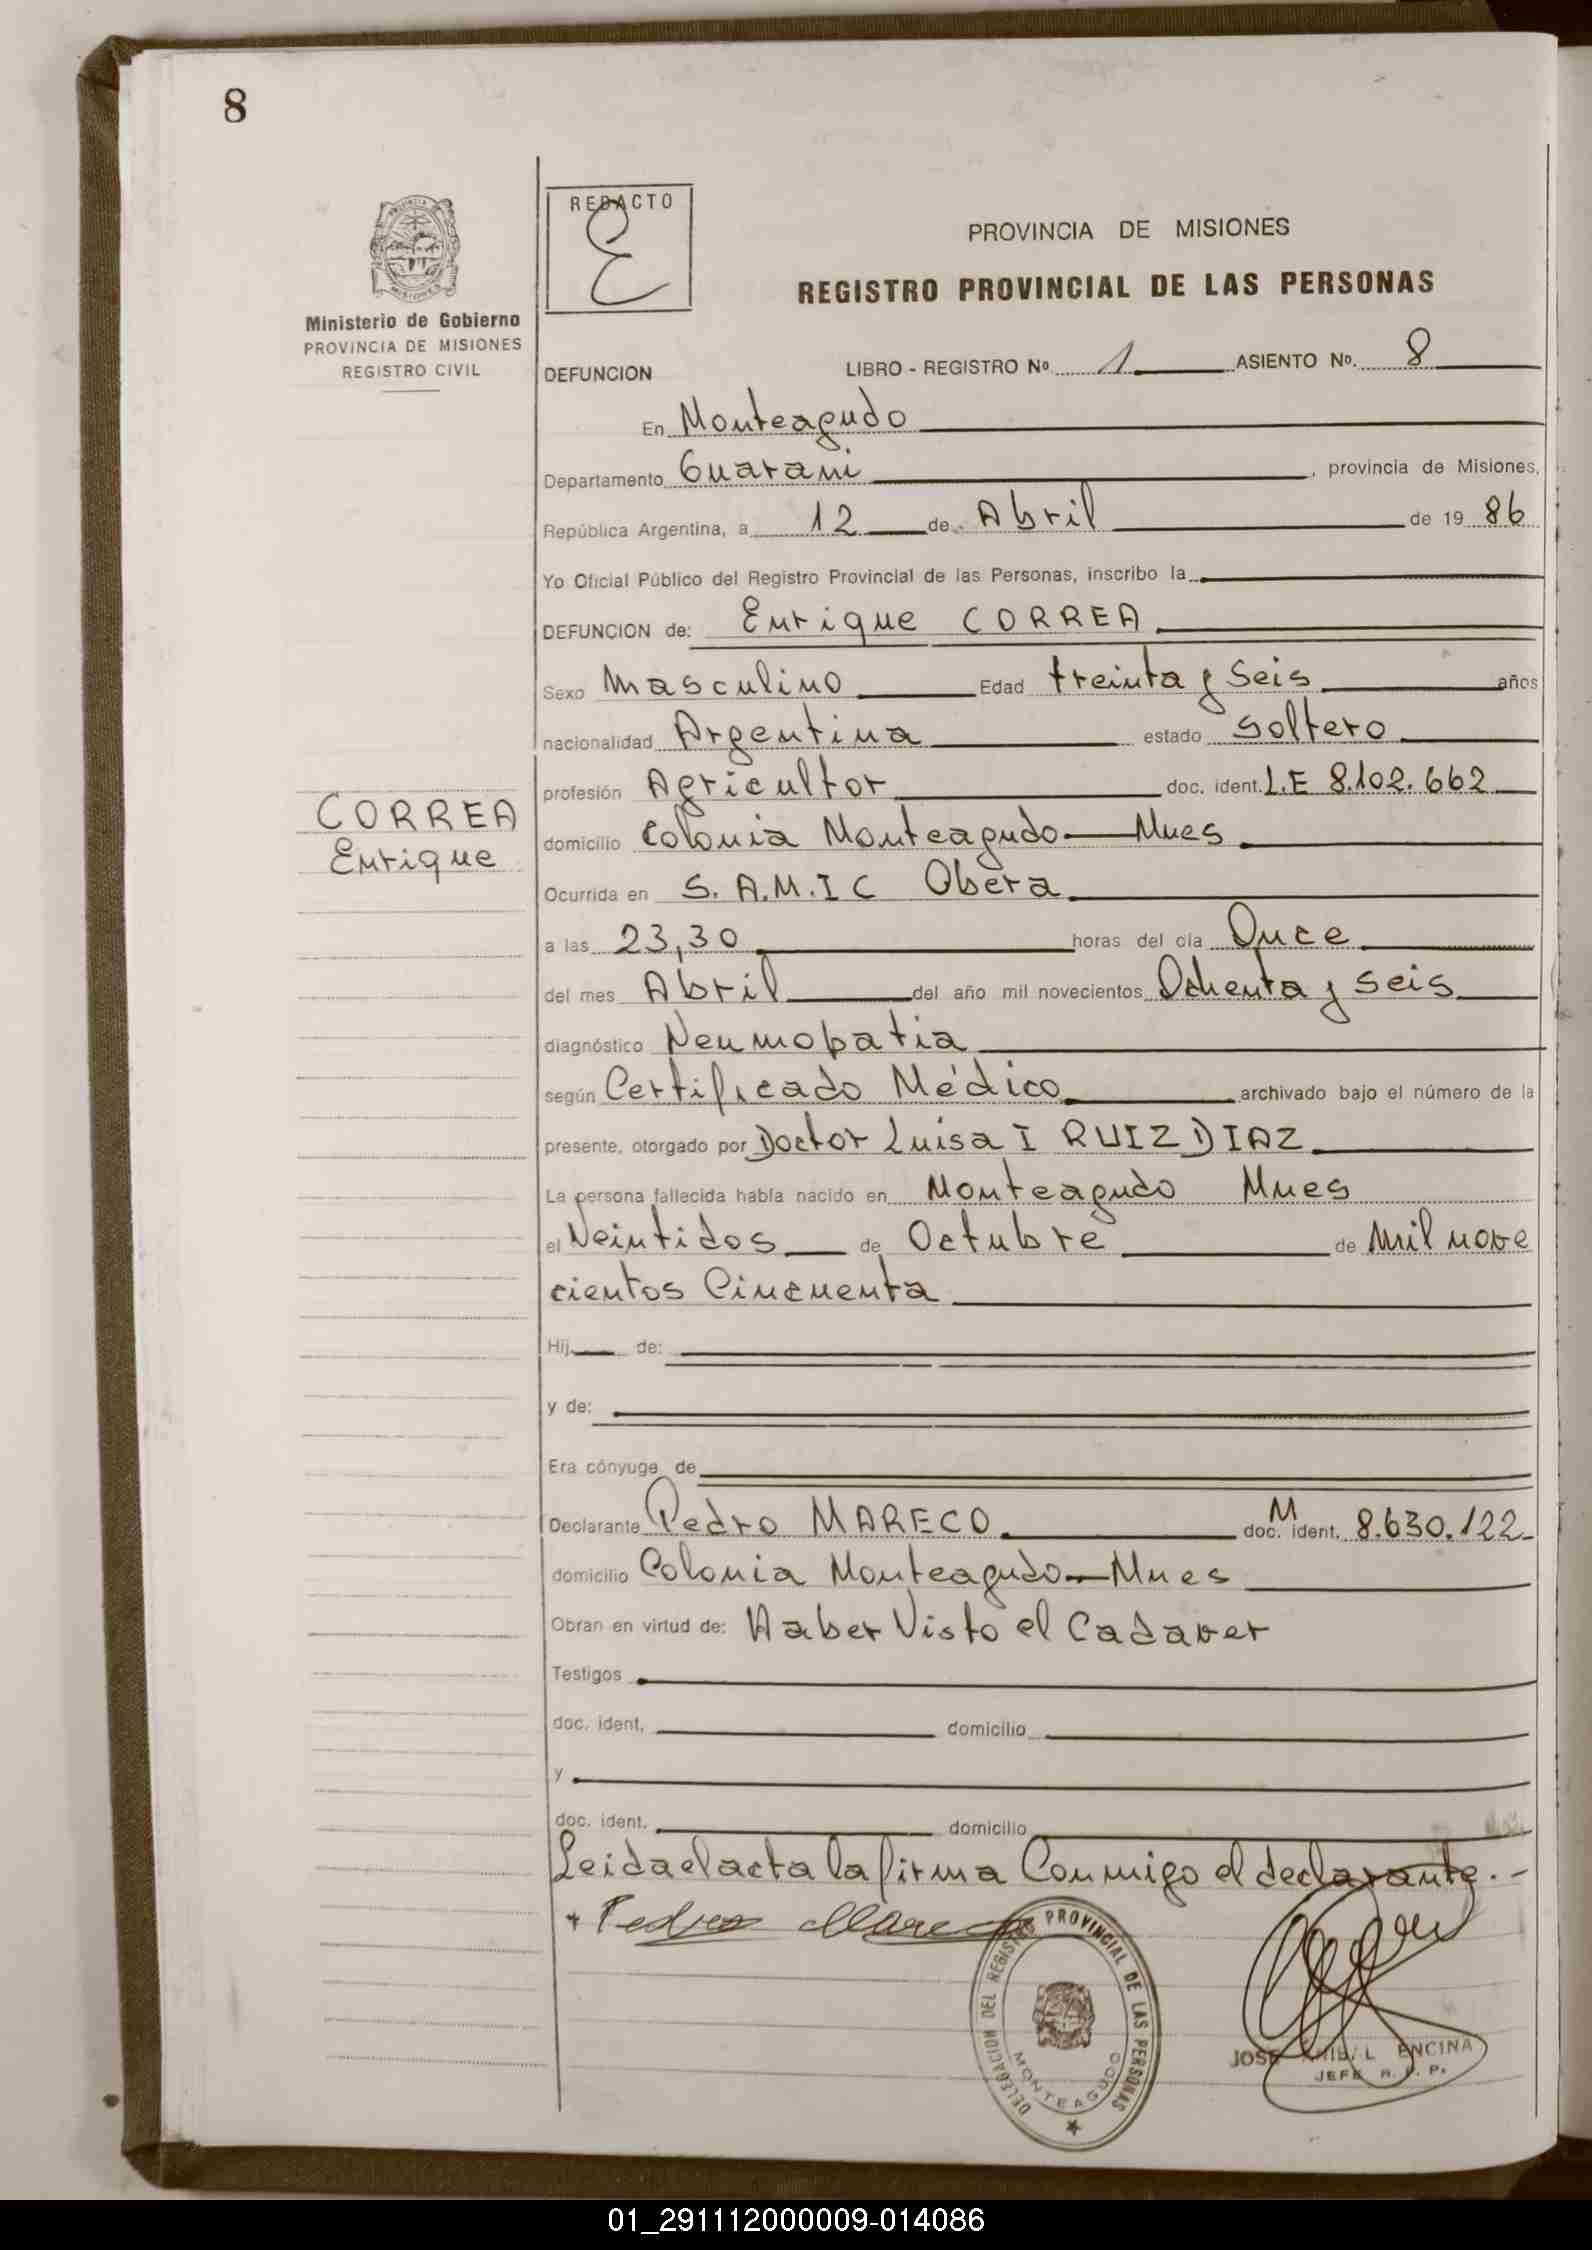 8
REDACTO
E
PROVINCIA DE MISIONES
REGISTRO PROVINCIAL DE LAS PERSONAS
Ministerio de Gobierno
PROVINCIA DE MISIONES
REGISTRO CIVIL
DEFUNCION LIBRO - REGISTRO Nº 1 ASIENTO Nº. 8
En Monteagudo
Departamento Guarani, provincia de Misiones,
República Argentina, a 12 de Abril de 19 86
Yo Oficial Público del Registro Provincial de las Personas, inscribo la
DEFUNCION de: Enrique CORREA
Sexo Masculino Edad treinta y Seis años
nacionalidad Argentina estado Soltero
profesión Agricultor doc. ident. L.E 8.102.662
CORREA
Enrique
domicilio Colonia Monteagudo - Mnes
Ocurrida en S. A.M.I C Obera
a las 23,30 horas del día Once
del mes Abril del año mil novecientos Ochenta y Seis
diagnóstico Neumopatia
según Certificado Médico archivado bajo el número de la
presente, otorgado por Doctor Luisa I RUIZ DIAZ
La persona fallecida había nacido en Monteagudo Mnes
el Veintidos de Octubre de Mil nove
cientos Cincuenta
Hij de:
y de:
Era cónyuge de
Declarante Pedro MARECO doc. M ident. 8.630.122
domicilio Colonia Monteagudo - Mnes
Obran en virtud de: Haber Visto el Cadaver
Testigos
doc. ident. domicilio
y
doc. ident. domicilio
Leida el acta la firma Conmigo el declarante. -
+ Pedro Mareco
DELEGACION DEL REGISTRO PROVINCIAL DE LAS PERSONAS
MONTEAGUDO
JOSE ENCINA
JEFE R. P. P.
MISIONES
01_291112000009-014086